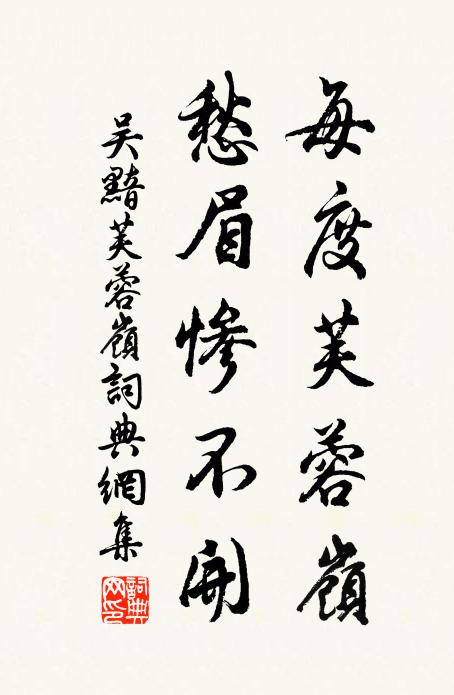 每度芙蓉嶺
愁眉慘不開
吴黯芙蓉嶺詞典網集
詞典網印